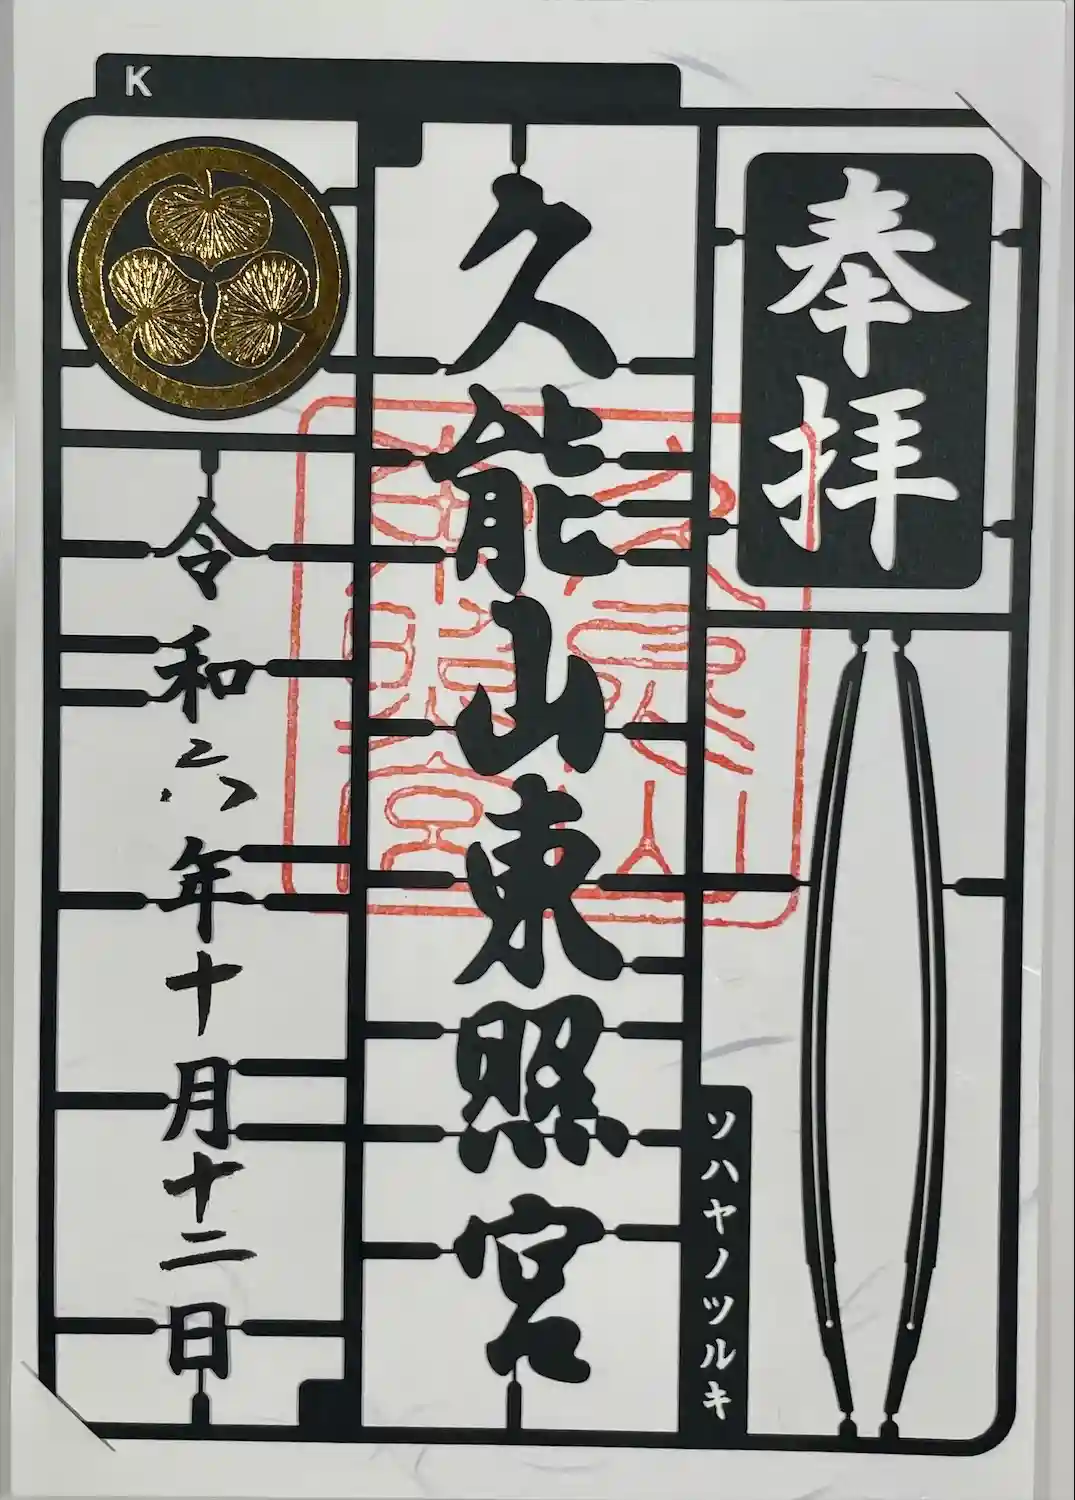 K
奉拝
ソハヤノツルキ
久能山東照宮
令和六年十月十二日